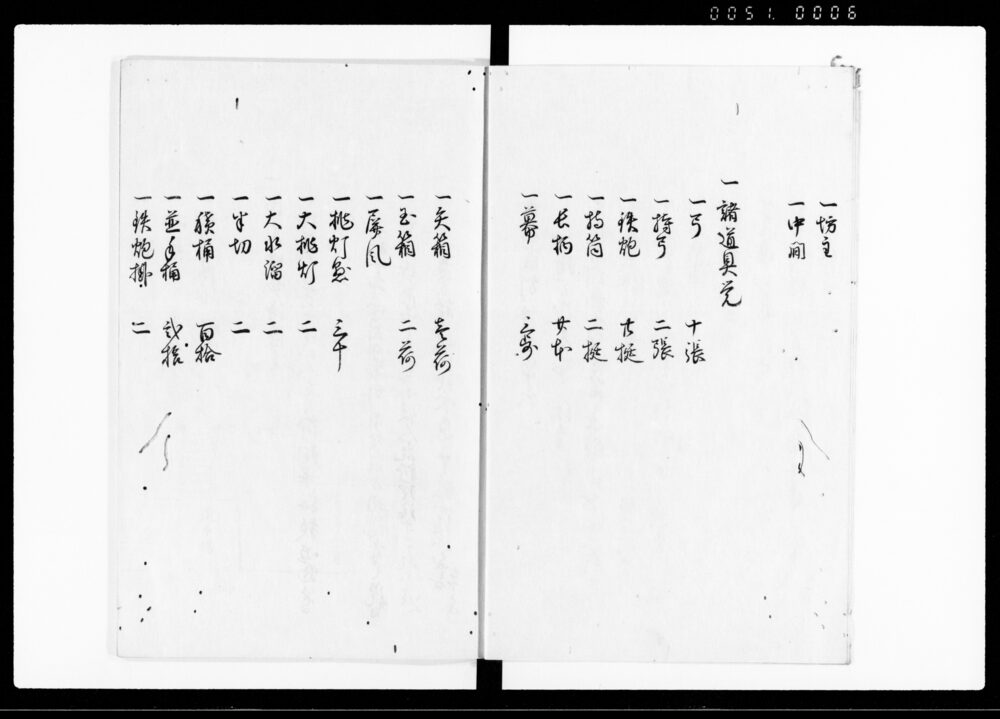 0051.0006
一坊主
一中間
一諸道具覚
一弓 十張
一持弓 二張
一鉄炮 廿挺
一持筒 二挺
一長柄 廿本
一幕
一矢箱 壱荷
一玉箱 二荷
一屏風
一挑灯 三十
一大挑灯 二
一大水溜 二
一半切 二
一積桶 百拾
一並手桶 弐拾
一鉄炮 二